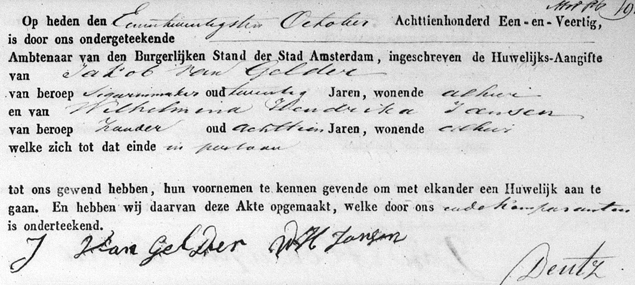 Op heden den Eenentwintigsten October Achttienhonderd Een-en-Veertig,
is door ons ondergeteekende
Ambtenaar van den Burgerlijken Stand der Stad Amsterdam, ingeschreven de Huwelijks-Aangifte
van Jakob van Gelder
van beroep Sigarenmaker oud twintig Jaren, wonende alhier
en van Wilhelmina Hendrika Jansen
van beroep Zonder oud achttien Jaren, wonende alhier
welke zich tot dat einde in persoon
tot ons gewend hebben, hun voornemen te kennen gevende om met elkander een Huwelijk aan te
gaan. En hebben wij daarvan deze Akte opgemaakt, welke door ons en de Komparanten
is onderteekend.
J van Gelder WH Jansen
Deutz